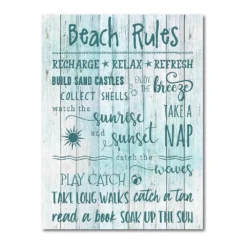 Beach Rules
RECHARGE • RELAX • REFRESH
BUILD SAND CASTLES
ENJOY THE breeze
COLLECT SHELLS
watch the sunrise and sunset
TAKE A NAP
catch the waves
PLAY CATCH
TAKE LONG WALKS catch a tan
read a book SOAK UP THE SUN